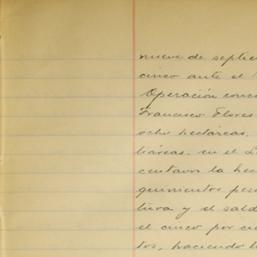 nueve de septie
cinco ante el
Operación conce
Francisco Flores
ocho hectáreas,
tiáreas, en el L
centavos la hec
quinientos pes
tiva y el sald
el cinco por ci
tos, haciendo